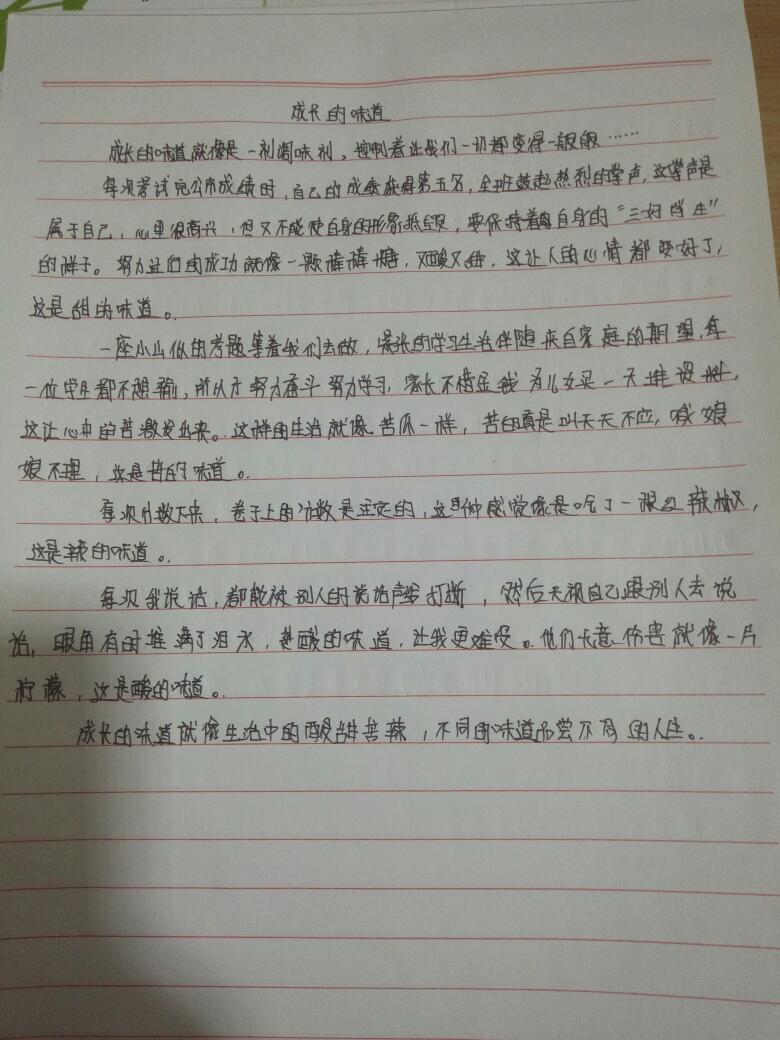 成长的味道
成长的味道就像是一剂调味剂，控制着让我们一切都变得一般般……
每次考试完公布成绩时，自己的成绩获得第五名，全班鼓起热烈的掌声，这掌声是
属于自己，心里很高兴，但又不能使自身的形象抵毁，要保持着自身的“三好学生”
的样子。努力过后的成功就像一颗棒棒糖，又酸又甜，这让人的心情都变好了，
这是甜的味道。
一座小山似的考题等着我们去做，紧张的学习生活伴随来自家庭的期望，每
一位学生都不想输，所以才努力奋斗努力学习，家长不惜金钱为儿女买一大堆资料，
这让心中的苦激发出来。这样的生活就像苦瓜一样，苦的真是叫天天不应，喊娘
娘不理，这是苦的味道。
每次分数下来，卷子上的分数是注定的，这种感觉像是吃了一根红辣椒，
这是辣的味道。
每次我说话，都能被别人的说话声给打断，然后无视自己跟别人去说
话，眼角有时堆满了泪水，是酸的味道，让我更难受。他们无意伤害就像一片
柠檬，这是酸的味道。
成长的味道就像生活中的酸甜苦辣，不同的味道品尝不同的人生。